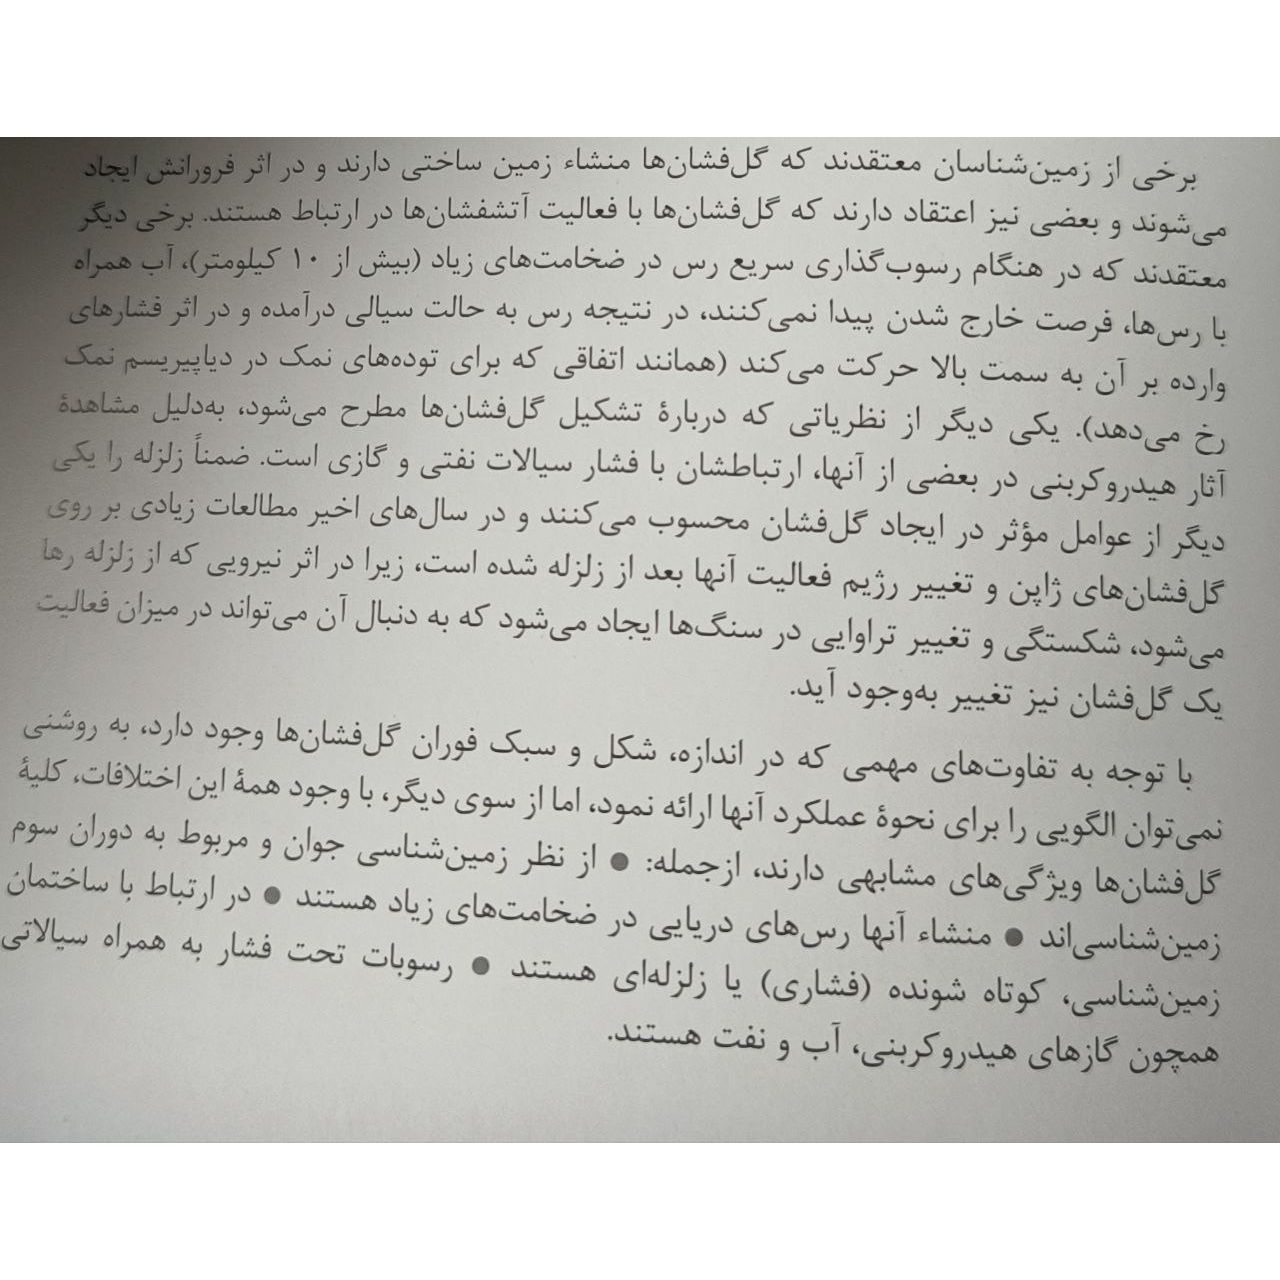 برخی از زمین‌شناسان معتقدند که گل‌فشان‌ها منشاء زمین ساختی دارند و در اثر فرورانش ایجاد
می‌شوند و بعضی نیز اعتقاد دارند که گل‌فشان‌ها با فعالیت آتشفشان‌ها در ارتباط هستند. برخی دیگر
معتقدند که در هنگام رسوب‌گذاری سریع رس در ضخامت‌های زیاد (بیش از ۱۰ کیلومتر)، آب همراه
با رس‌ها، فرصت خارج شدن پیدا نمی‌کنند، در نتیجه رس به حالت سیالی درآمده و در اثر فشارهای
وارده بر آن به سمت بالا حرکت می‌کند (همانند اتفاقی که برای توده‌های نمک در دیاپیریسم نمک
رخ می‌دهد). یکی دیگر از نظریاتی که دربارهٔ تشکیل گل‌فشان‌ها مطرح می‌شود، به‌دلیل مشاهدهٔ
آثار هیدروکربنی در بعضی از آنها، ارتباطشان با فشار سیالات نفتی و گازی است. ضمناً زلزله را یکی
دیگر از عوامل مؤثر در ایجاد گل‌فشان محسوب می‌کنند و در سال‌های اخیر مطالعات زیادی بر روی
گل‌فشان‌های ژاپن و تغییر رژیم فعالیت آنها بعد از زلزله شده است، زیرا در اثر نیرویی که از زلزله رها
می‌شود، شکستگی و تغییر تراوایی در سنگ‌ها ایجاد می‌شود که به دنبال آن می‌تواند در میزان فعالیت
یک گل‌فشان نیز تغییر به‌وجود آید.
با توجه به تفاوت‌های مهمی که در اندازه، شکل و سبک فوران گل‌فشان‌ها وجود دارد، به روشنی
نمی‌توان الگویی را برای نحوهٔ عملکرد آنها ارائه نمود، اما از سوی دیگر، با وجود همهٔ این اختلافات، کلیهٔ
گل‌فشان‌ها ویژگی‌های مشابهی دارند، ازجمله: ● از نظر زمین‌شناسی جوان و مربوط به دوران سوم
زمین‌شناسی‌اند ● منشاء آنها رس‌های دریایی در ضخامت‌های زیاد هستند ● در ارتباط با ساختمان
زمین‌شناسی، کوتاه شونده (فشاری) یا زلزله‌ای هستند ● رسوبات تحت فشار به همراه سیالاتی
همچون گازهای هیدروکربنی، آب و نفت هستند.